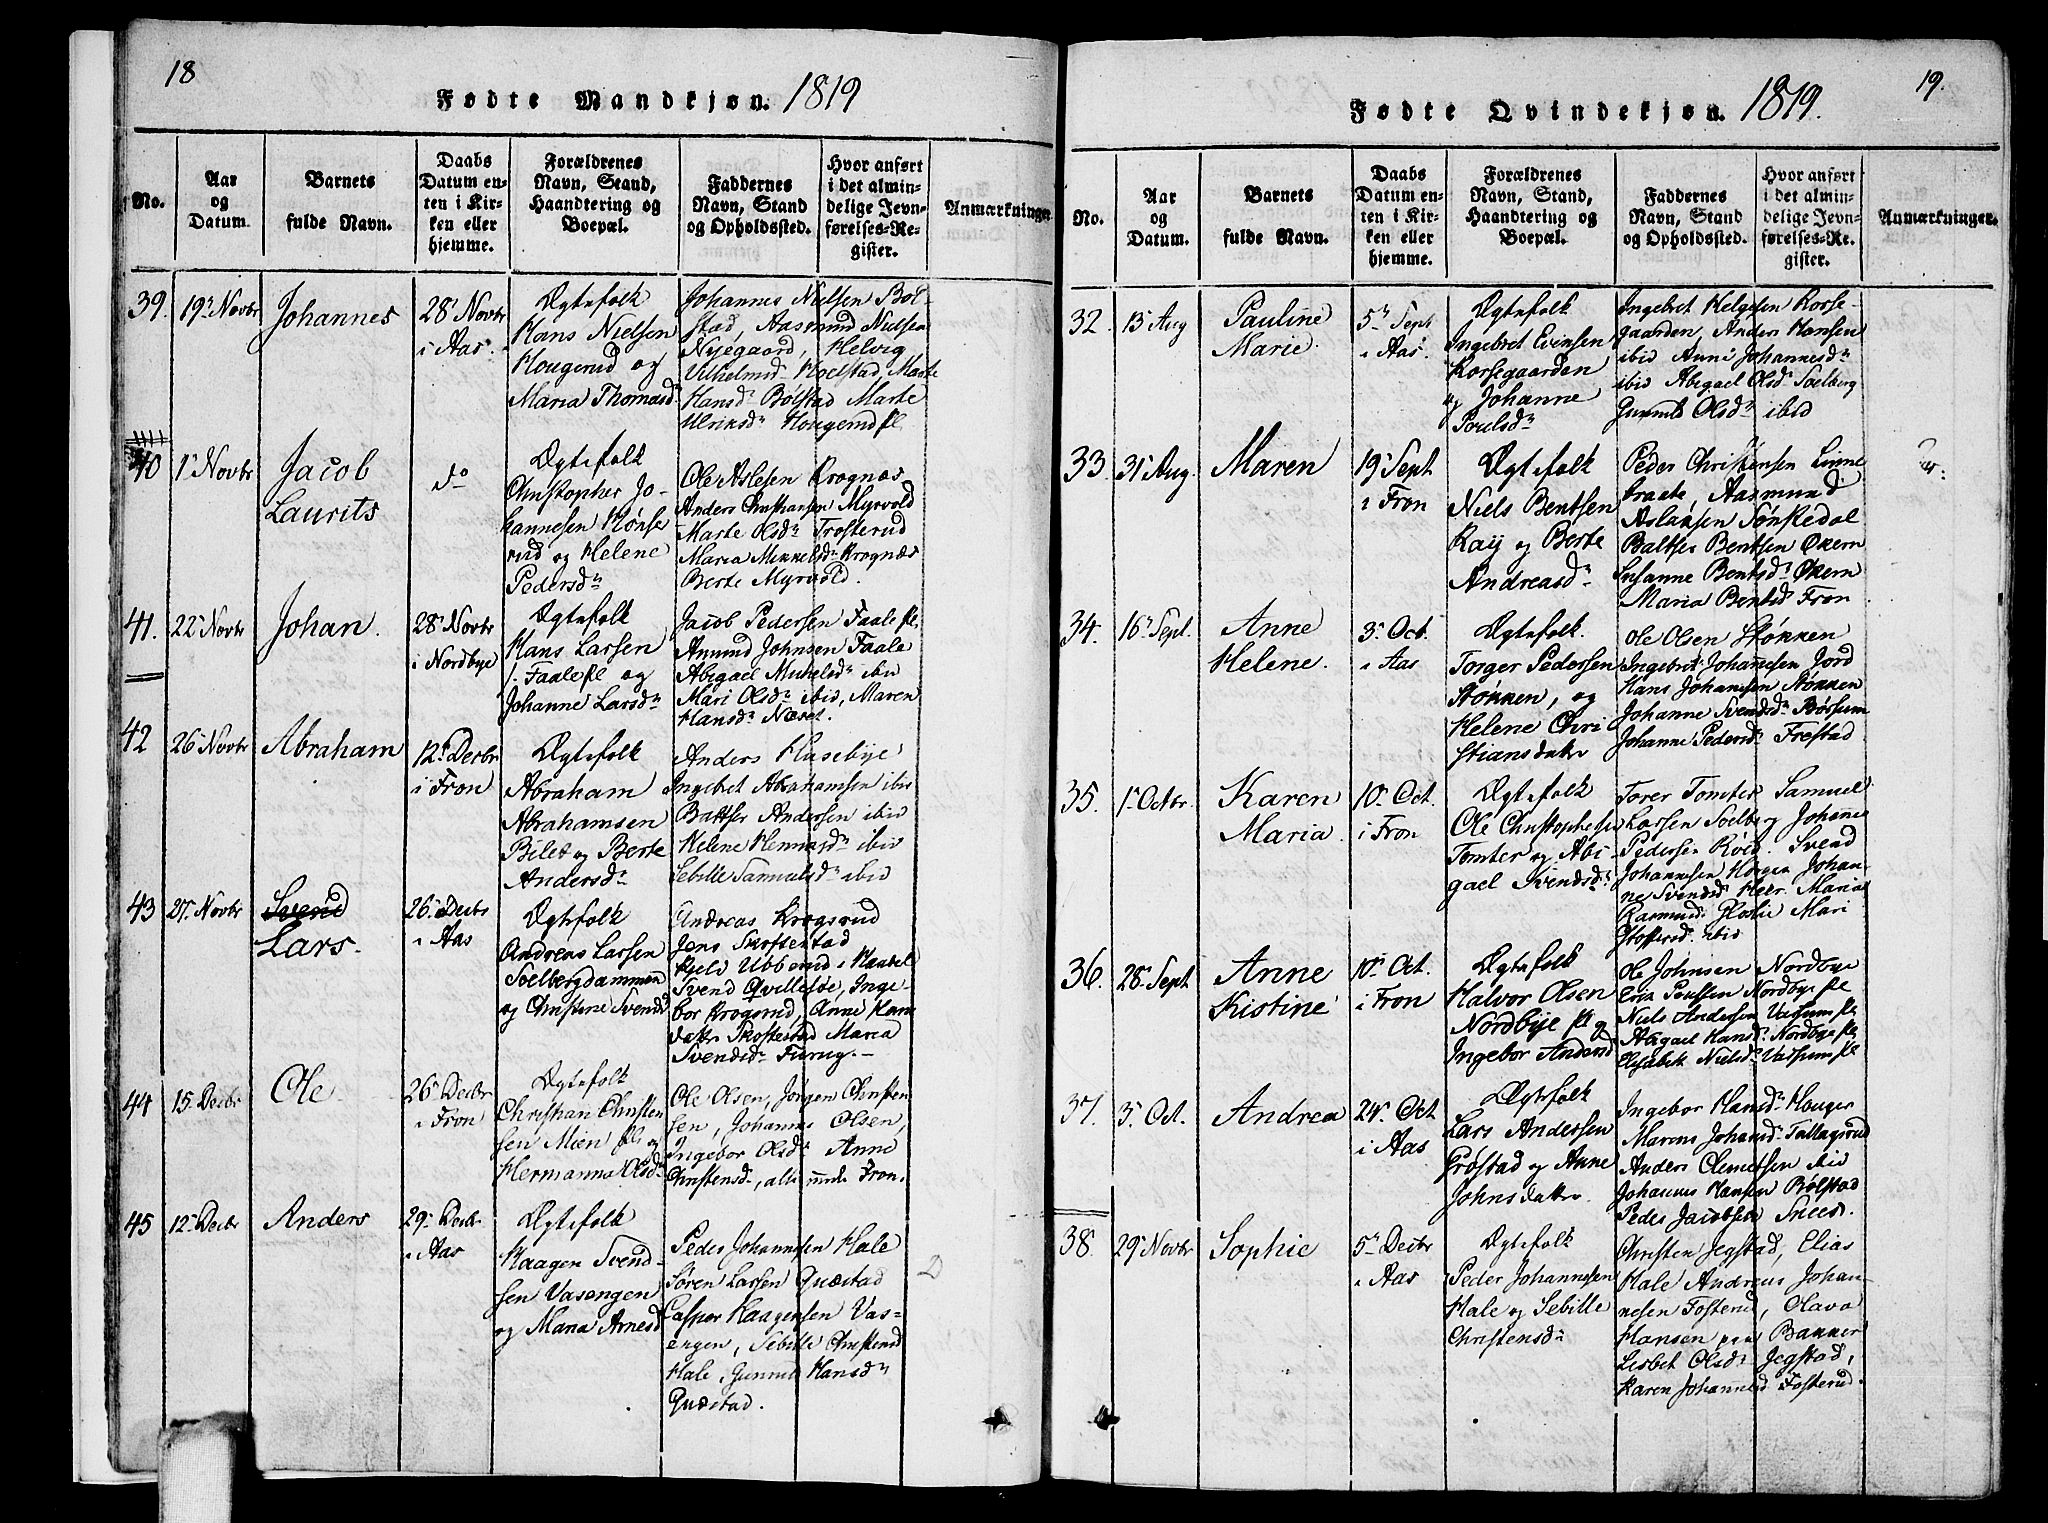 18
Fødte Mandkjøn. 1819
No.
Aar
og
Datum.
Barnets
fulde Navn.
Daabs
Datum en-
ten i Kir-
ken eller
hjemme.
Forældrenes
Navn, Stand,
Haandtering og
Boepæl.
Faddernes
Navn, Stand
og Opholdssted.
Hvor anført
i det almin-
delige Jevn-
førelses-Re-
gister.
Anmærkninger
39.
19 Novbr
Johannes
28 Novbr
i Aas.
Ægtefolk
Hans Nielsen
Hougerud og
Maria Thomasd
Johannes Nielsen Bøl-
stad, Aasmund Nielsen
Nyegaard, Helvig
Vilhelmsd Hoelstad, Marte
Hansdr Bølstad Marte
Ulriksdr Hougerud pl.
40
1 Novbr
Jacob
Laurits
do
Ægtefolk
Christopher Jo-
hannesen Hønse
rud og Helene
Pedersdr
Ole Aslesen Krognæs
Anders Christiansen Myrvold
Marte Olsdr Trosterud
Maria Mikkelsdr Krognæs
Berte Myrvold.
41.
22 Novbr
Johan.
28 Novbr
i Nordbye
Ægtefolk
Hans Larsen
Faale pl og
Johanne Larsdr
Jacob Pedersen Faale pl.
Amund Johnsen Faale
Abigael Michelsdr ibid
Mari Olsdr ibid, Maren
Hansdr Næset.
42
26 Novbr
Abraham
12 Decbr
i Fron
Ægtefolk
Abraham
Abrahamsen
Bilet og Berte
Andersdr
Anders Husebye
Ingebret Abrahamsen ibid
Baltser Andersen ibid
Helene Hennusdr ibid
Sebille Samuelsdr ibid
43
27 Novbr
Svend
Lars.
26 Decbr
i Aas
Ægtefolk
Andreas Larsen
Solbergdammen
og Christine Svendsd
Andreas Krogsrud
Jens Skoftestad
Kield Ubberud i
Svend Qvillesøe, Inge-
bor Krogsrud, Anne Han
datter Skoftestad Maria
Svendsdr Furug.
44
15 Decbr
Ole
26 Decbr
i Fron
Ægtefolk
Christian Christen
sen Mien pl og
Hermanna Olsdr
Ole Olsen, Jørgen Christen
sen, Johannes Olsen,
Ingebor Olsdr Anne
Christensdr, alle unde Fron.
45
12 Decbr
Anders
29 Decbr
i Aas
Ægtefolk
Haagen Svend-
sen Vasengen
og Maria Arnesd
Peder Johannesen Hale
Søren Larsen Quæstad
Casper Haagensen Vas-
engen, Sebille Christensd
Hale, Gunnil Hansdr
Quæstad.
19.
Fødte Qvindekjøn. 1819.
No.
Aar
og
Datum.
Barnets
fulde Navn.
Daabs
Datum en-
ten i Kir-
ken eller
hjemme.
Forældrenes
Navn, Stand,
Haandtering og
Boepæl.
Faddernes
Navn, Stand
og Opholdssted.
Hvor anført
i det almin-
delige Jevn-
førelses-Re-
gister.
Anmærkninger.
32.
13 Aug
Pauline
Marie.
5 Sept
i Aas.
Ægtefolk
Ingebret Evensen
Korsegaarden
og Johanne
Poulsdr
Ingebret Helgesen Korse-
gaarden, Anders Hansen
ibid Anne Johannesdr
ibid Abigael Olsdr Soelberg
Gunnil Olsdr ibid
33.
31 Aug.
Maren
19 Sept
i Fron
Ægtefolk
Niels Bentsen
Kay og Berte
Andreasdr
Peder Christensen Linne
Aasmund
Aslaksen Sønstedal
Baltser Bentsen Økern
Susanne Bentsdr Økern
Maria Bentsd Fron
34.
16 Sept.
Anne
Helene.
3 Oct.
i Aas
Ægtefolk.
Torger Pedersen
Støkken, og
Helene Chri
stiansdatter
Ole Olsen Støkken
Ingebret Johannesen Jord
Hans Johannesen Støkken
Johanne Svendsdr Børsum
Johanne Pedersdr Frestad
35.
1 Octbr.
Karen
Maria.
10 Oct.
i Fron
Ægtefolk
Ole Christophersen
Tomter og Abi-
gael Svendsdr
Torer Tomter Samuel
Larsen Soelberg Johanne
Pedersen Svend
Johannesen Horgen Johan-
ne Svendsd Heer Maria
Rasmusd. Mari
ibid
36.
28 Sept
Anne
Kistine
10 Oct.
i Fron
Ægtefolk
Halvor Olsen
Nordbye pl og
Ingebor Andersd
Ole Johnsen Nordbye
Erik Poulsen Nordbye pl
Niels Andersen Vassum pl
Abigael Hansdr Nordbye pl.
Elisabet Nielsdr Vassum pl
37.
3 Oct.
Andrea
24 Oct
i Aas
Ægtefolk
Lars Andersen
Frøstad og Anne
Johnsdatter
Ingebor Hansdr Houger
Maren Johansd Tallagsrud
Anders Clemetsen ibid
Johannes Hansen Bølstad
Peder Jacobsen Snees.
38.
29 Novbr
Sophie
5 Decbr
i Aas
Ægtefolk
Peder Johannesen
Hale og Sebille
Christensdr
Christen Jegstad, Elias
Hale Andreas Johan-
nesen Fosterud, Olava
Hansen paa Banner
Lisbet Olsdr Jegstad,
Karen Johannesd Fosterud.